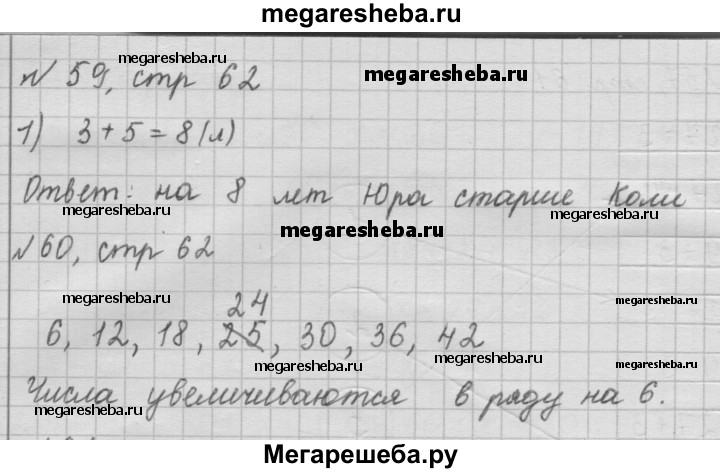 megaresheba.ru
megaresheba.ru
№ 59, стр 62 megaresheba.ru
1) 3 + 5 = 8 (л)
Ответ: на 8 лет Юра старше Коли
megaresheba.ru megaresheba.ru megaresheba.ru
№ 60, стр 62
megaresheba.ru 24 megaresheba.ru
6, 12, 18, 25, 30, 36, 42
megaresheba.ru megaresheba.ru megaresheba.ru
Числа увеличиваются в ряду на 6.
megaresheba.ru megaresheba.ru
Мегарешеба.ру